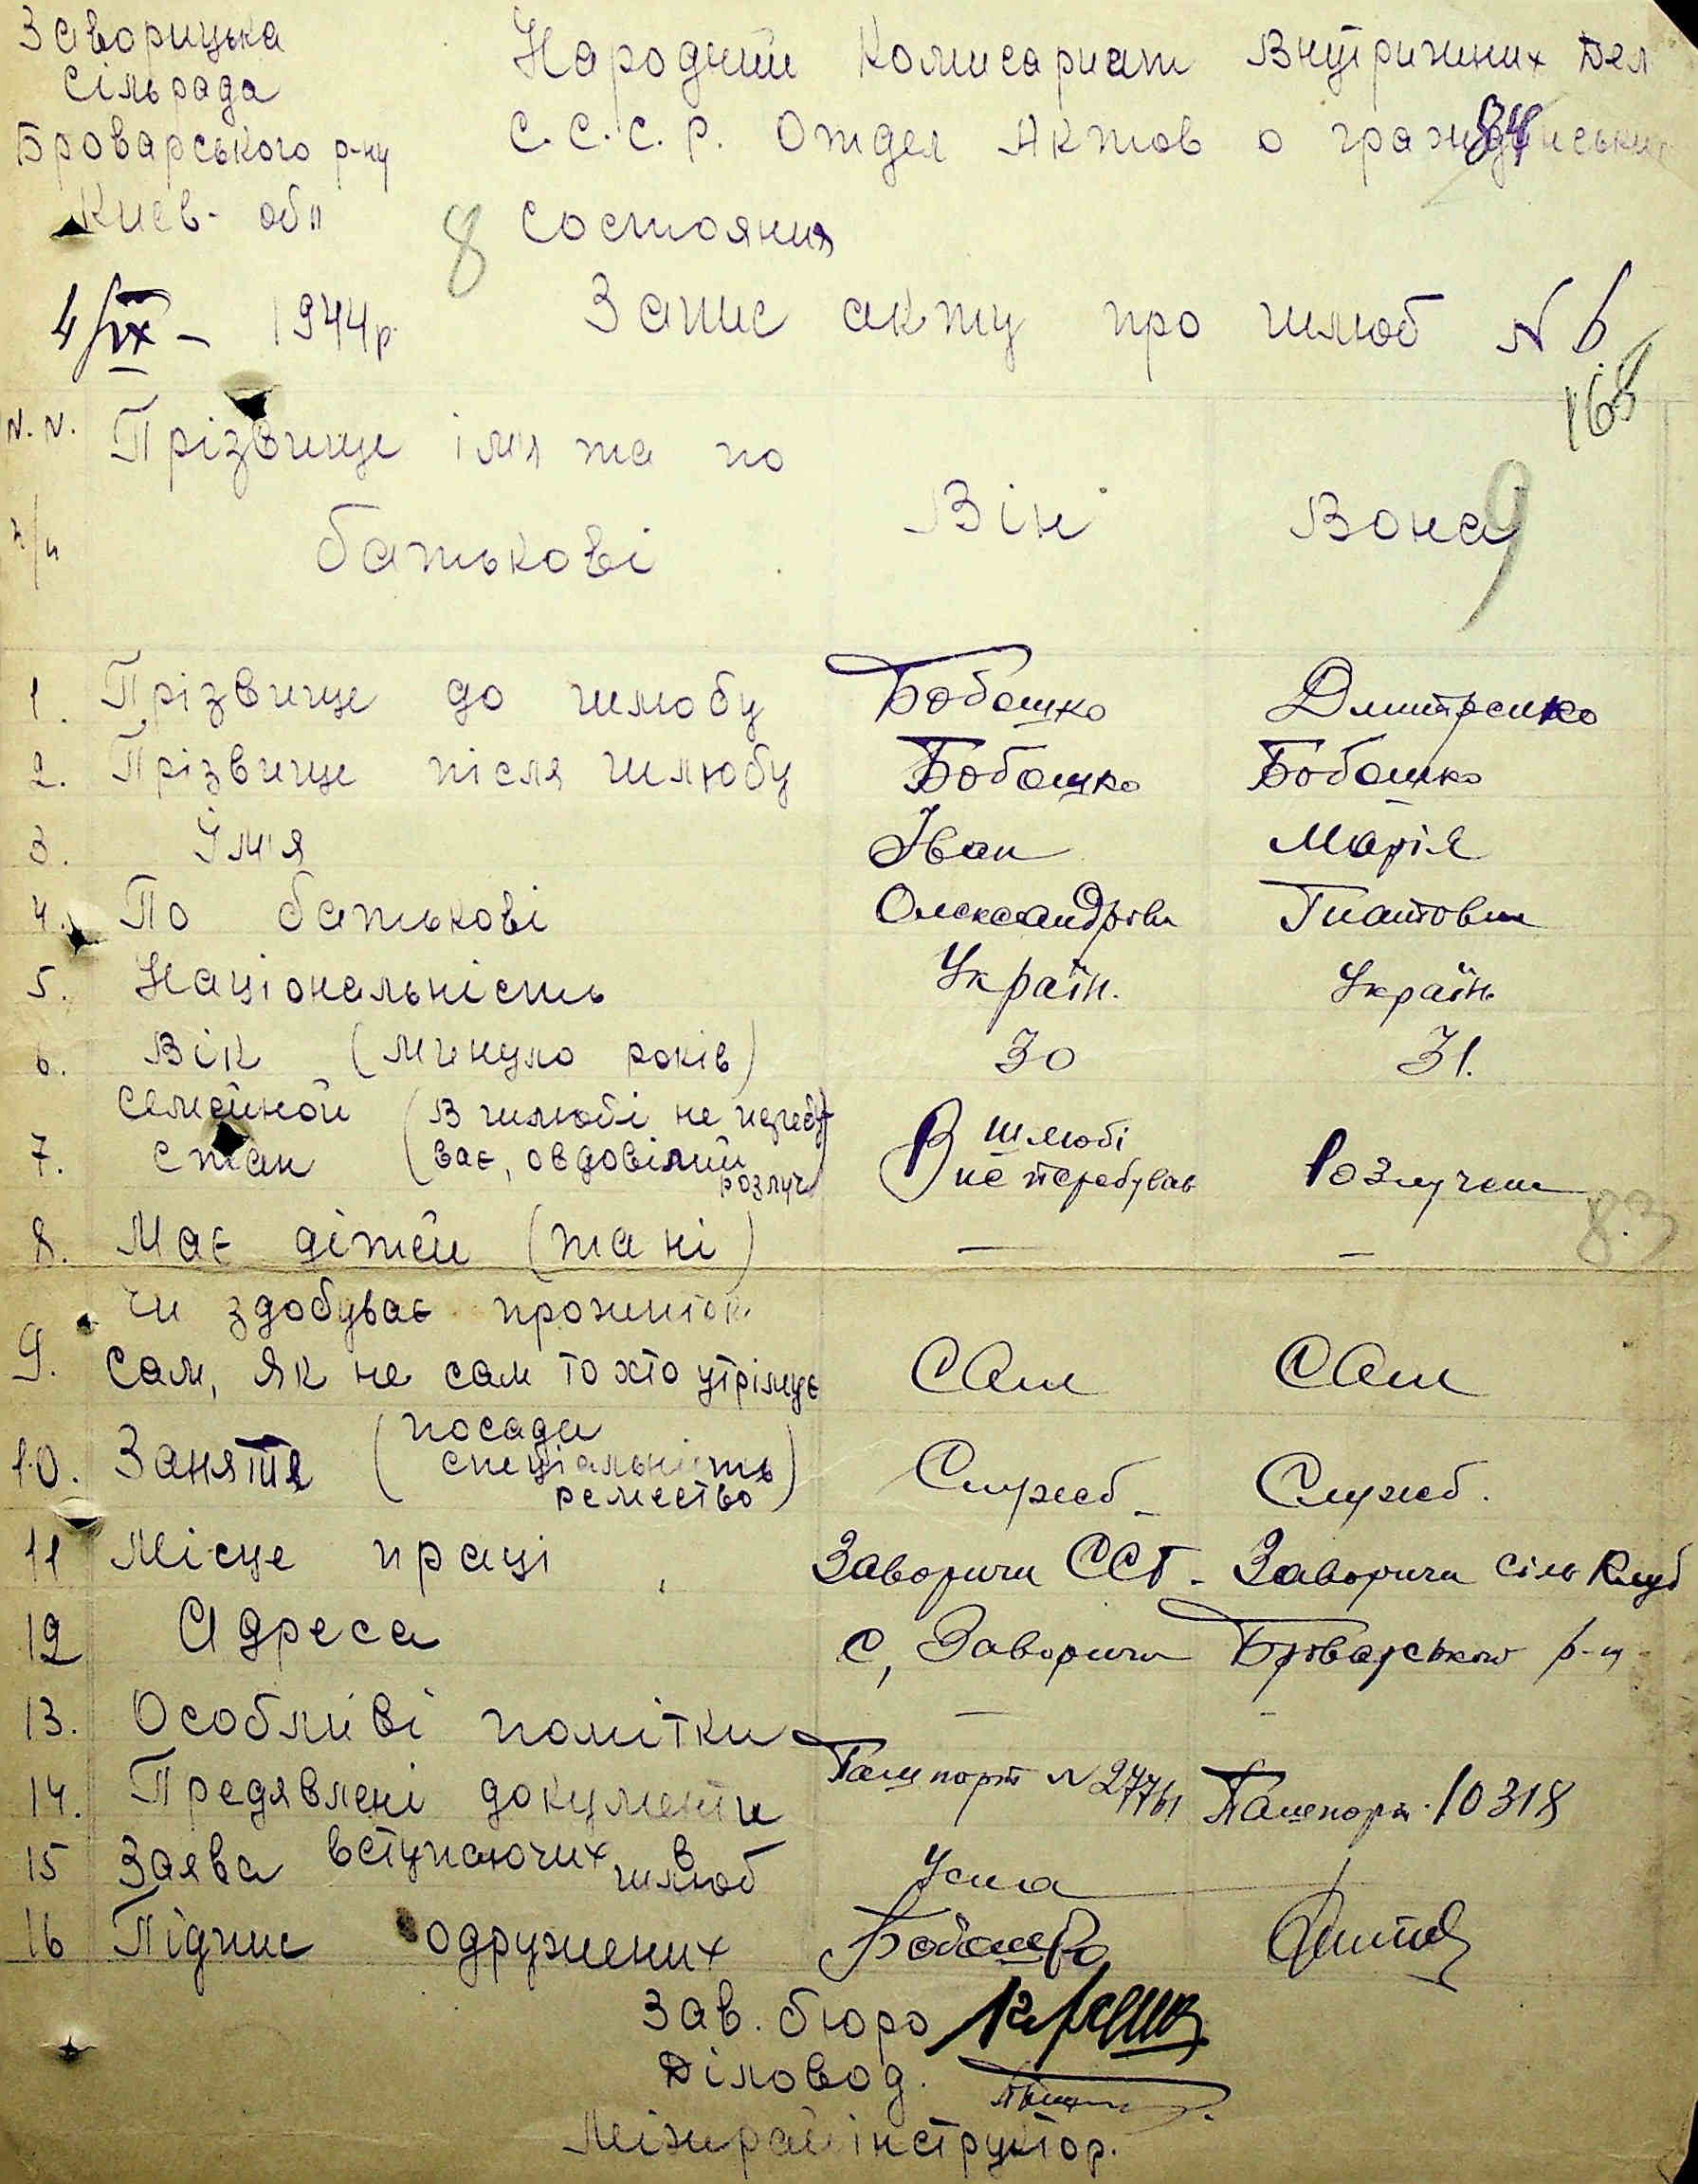 Заворицька
сільрада
Броварського р-ну
Киев- обл
Народний Комисариат Внутрижних Дел
С.С.С.Р. Отдел Актов о гражданських
84
8
состояния
4/ІХ – 1944р.
Запис акту про шлюб N 6.
168
N.N.
п/п
Прізвище ім'я та по
батькові
Він
Вона
9
1. Прізвище до шлюбу Бобошко Дмитренко
2. Прізвище після шлюбу Бобошко Бобошко
3. Їм'я Іван Марія
4. По батькові Олександрови Гнатовна
5. Національність Україн. Україн.
6. Вік (минуло років) 30 31.
7. Семейной стан (В шлюбі не перебу
ває, овдовілий
розлуч)
В шлюбі
не перебував
Розлучена
83
8. Має дітей (та ні) — —
9. Чи здобуває прожиток
сам, як не сам то хто утрімує Сам Сам
10. Заняття (посада
спеціальність
ремество) Служб. Служб.
11 Місце праці Заворичи ССТ. Заворичи сіль Клуб
12 Адреса с, Заворичи Броварського р-н
13. Особливі помітки — -
14. Предявлені документи Пашпорт N 27761 Пашпорт 10318
15 Заява вступаючих в
шлюб Усна
16 Підпис одружених Бобошко
Зав. бюро
Діловод.
Міжрайінструктор.